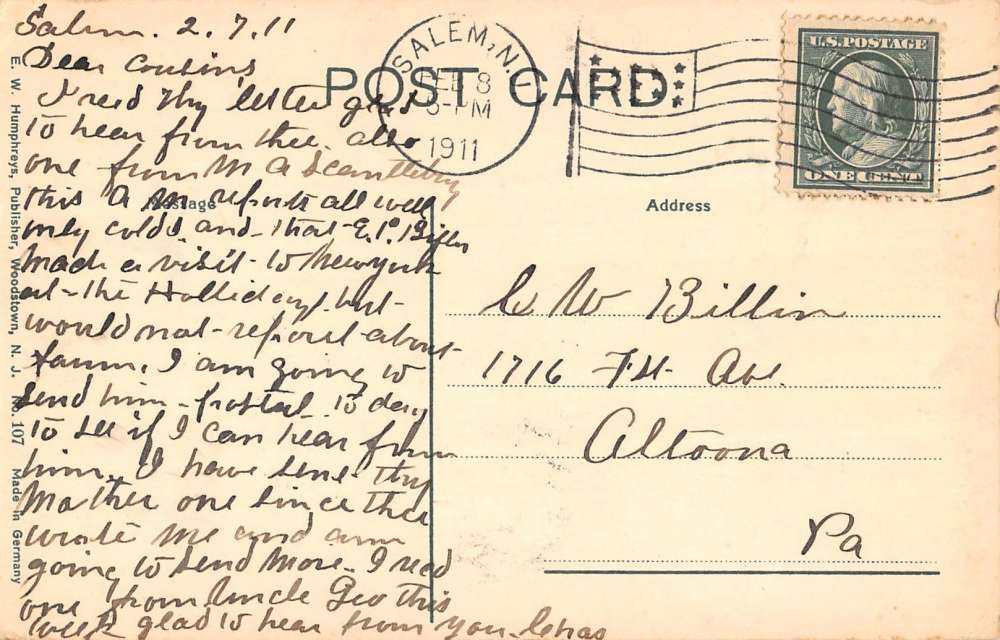 Salem. 2. 7. 11
Dear Cousins,
I recd thy letter glad
to hear from thee. also
one from M A
this A M reports all well
only colds and that E. P. Billin
made a visit to New york
at the Holliday but
would not report about
farm. I am going to
send him postal to day
to see if I can hear from
him. I have send thy
Mother one since thee
wrote me and am
going to send more. I recd
one from Uncle Geo this
week glad to hear from you. Chas
POST CARD
Message
Address
SALEM, N.
FEB 8
3-PM
1911
U.S. POSTAGE
ONE CENT
C W Billin
1716 7th Ave.
Altoona
Pa
E. W. Humphreys, Publisher, Woodstown, N. J. No. 107 Made in Germany